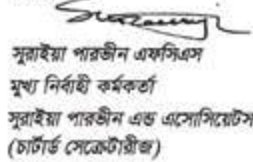 সুরাইয়া পারভীন এফসিএস
মুখ্য নির্বাহী কর্মকর্তা
সুরাইয়া পারভীন এন্ড এসোসিয়েটস
(চার্টার্ড সেক্রেটারীজ)